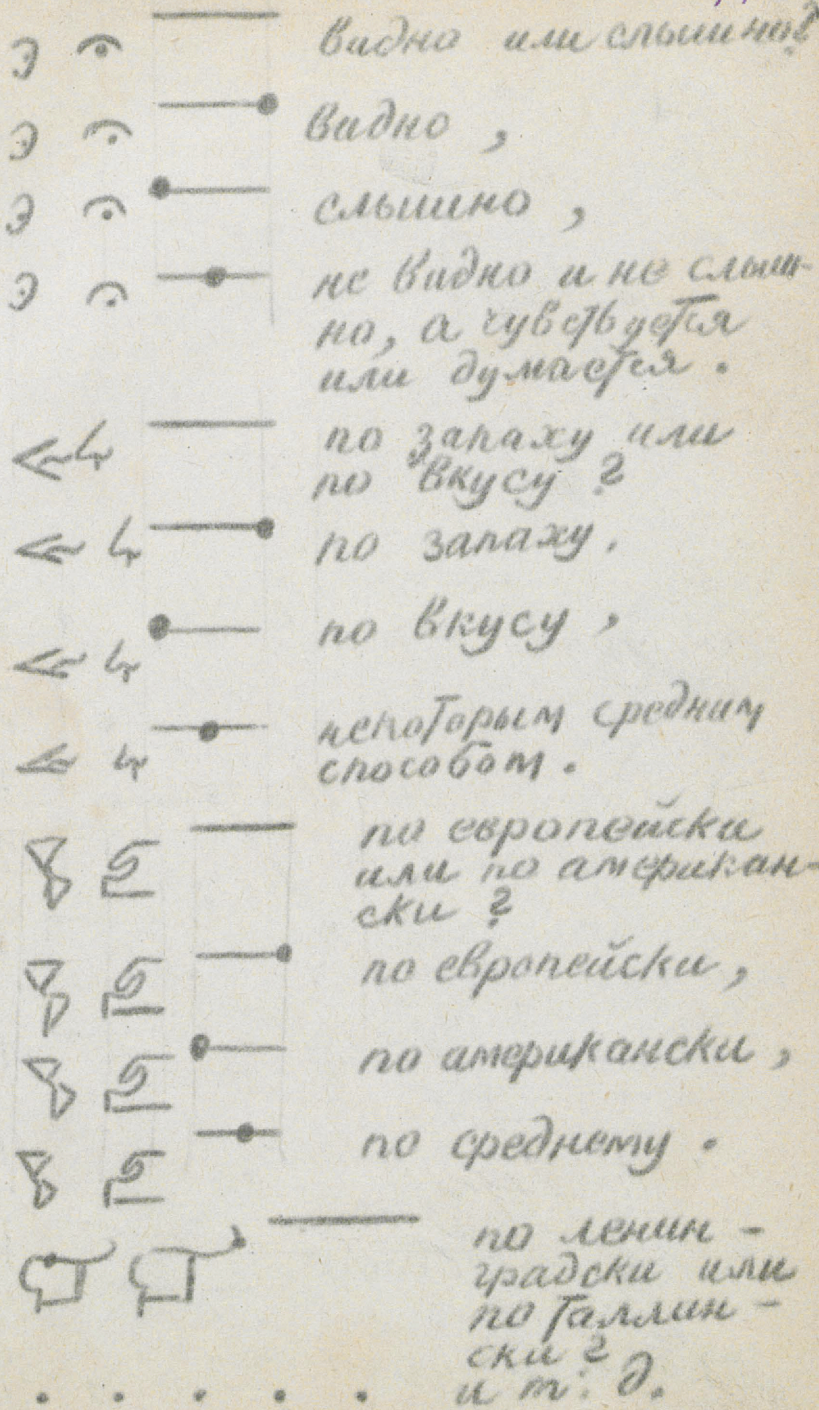 видно или слышно?
видно,
слышно,
не видно и не слыш-
но, а чувствуется
или думается.
по запаху или
по вкусу?
по запаху.
по вкусу,
некоторым средним
способом.
по европейски
или по американ-
ски?
по европейски,
по американски,
по среднему.
по ленин-
градски или
по таллин-
ски?
и т. д.